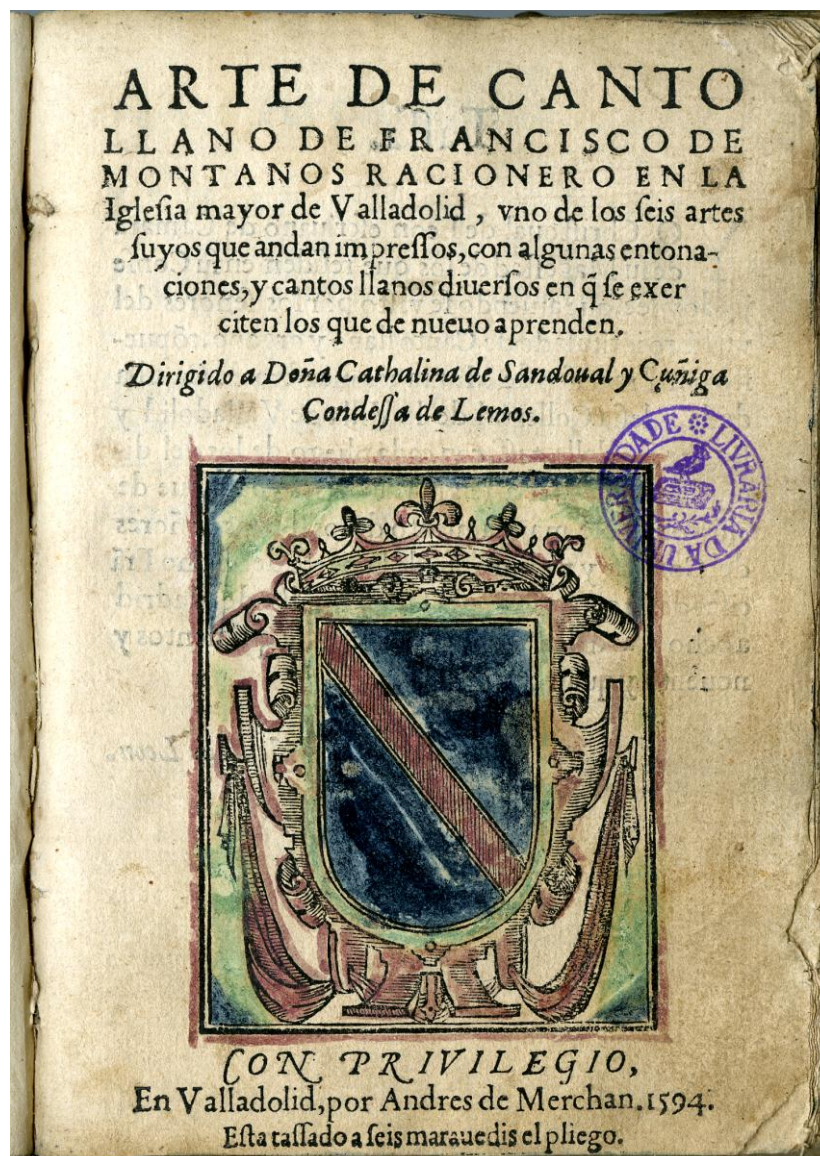 ARTE DE CANTO
LLANO DE FRANCISCO DE
MONTANOS RACIONERO EN LA
Igleſia mayor de Valladolid, vno de los ſeis artes
ſuyos que andan impreſſos, con algunas entona-
ciones, y cantos llanos diuerſos en q̃ ſe exer
citen los que de nueuo aprenden.
Dirigido a Doña Cathalina de Sandoual y Cuñiga
Condeſſa de Lemos.
LIVRARIA DA UNIVERSIDADE
CON PRIVILEGIO,
En Valladolid, por Andres de Merchan. 1594.
Eſta taſſado a ſeis marauedis el pliego.